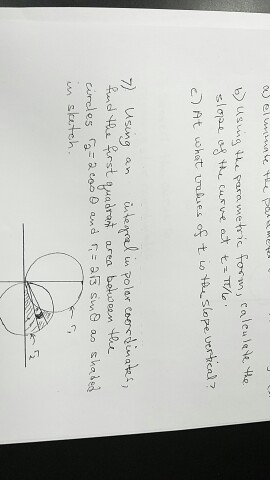 a) eliminate the parameter
b) Using the parametric form, calculate the
slope of the curve at t = π/6.
c) At what values of t is the slope vertical?
7) Using an integral in polar coordinates,
find the first quadrant area between the
circles r₂ = 2 cos θ and r₁ = 2√3 sin θ as shaded
in sketch.
r₁
r₂